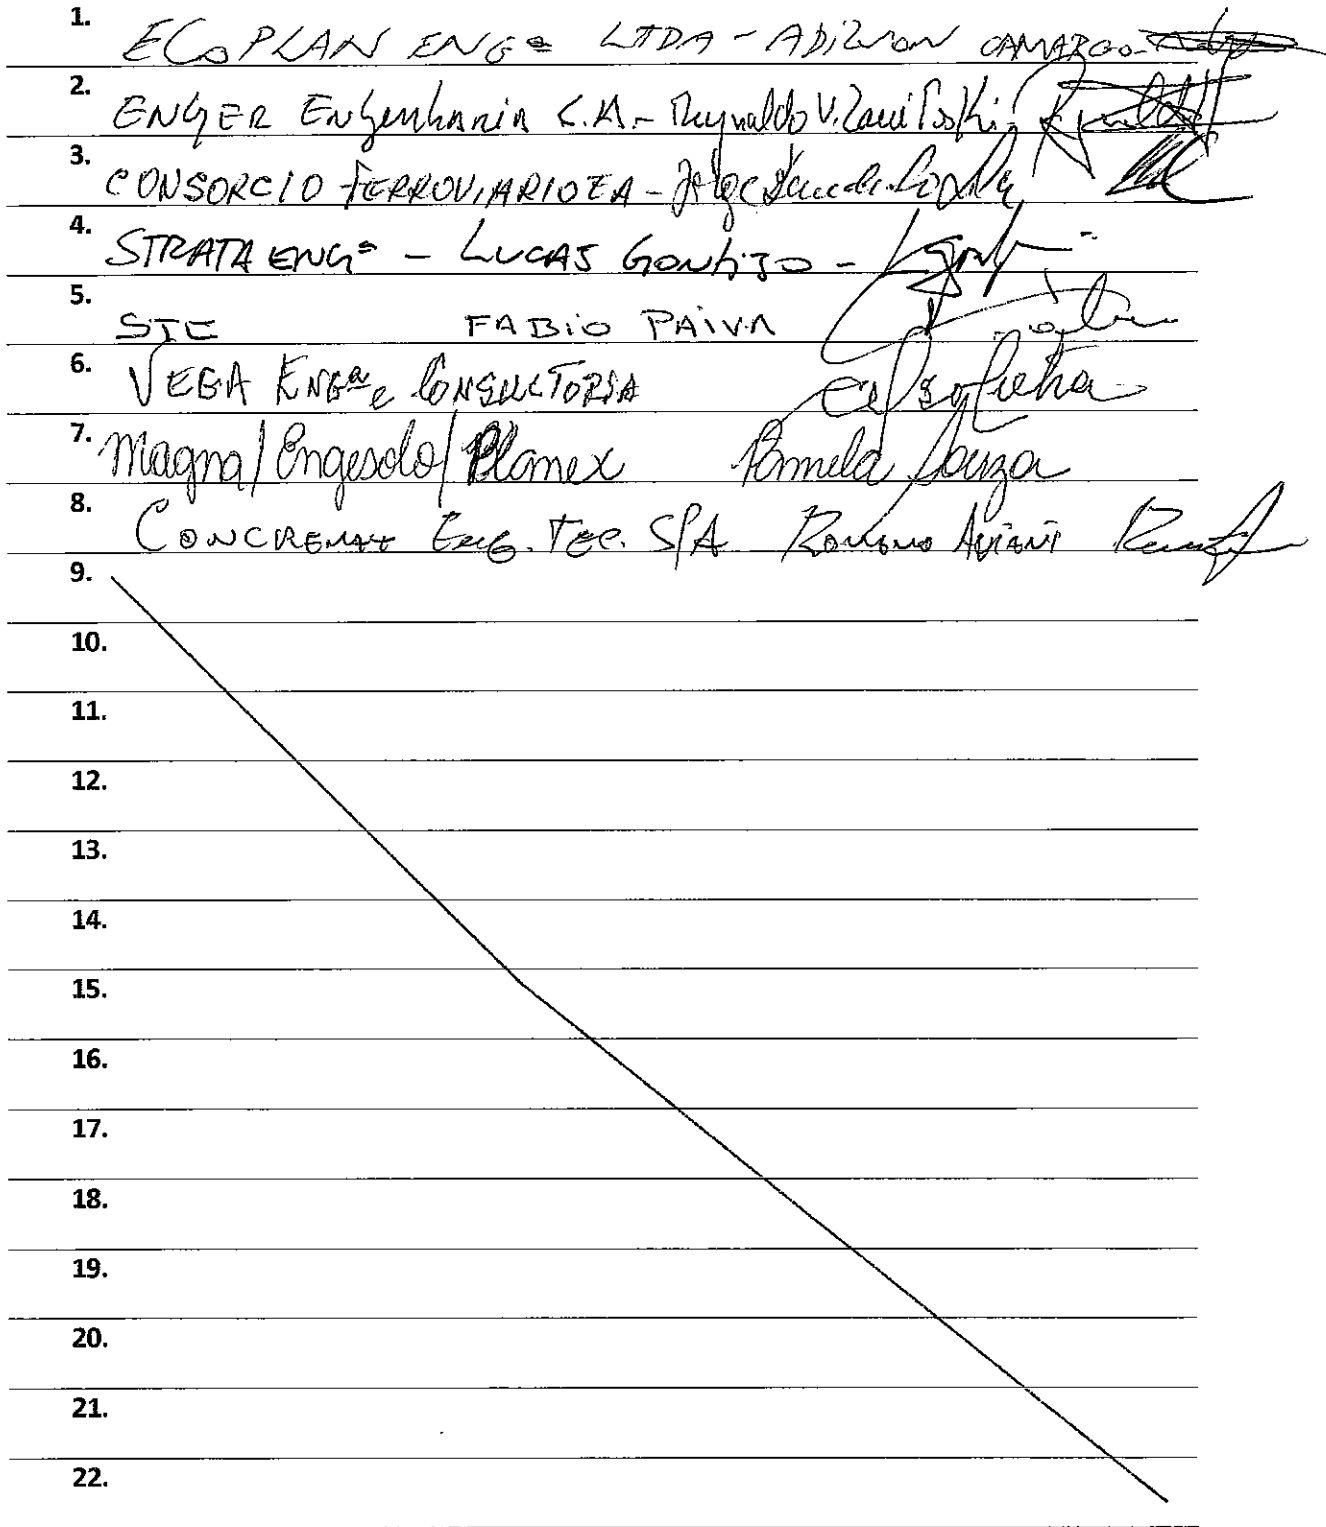 1. ECOPLAN ENGª LTDA - ADILSON CAMARGO -
2. ENGER Engenharia S.A. - Reynaldo V.
3. CONSORCIO FERROVIARIO - Jorge
4. STRATA ENGª - LUCAS GONTIJO -
5. STE FABIO PAIVA
6. VEGA ENGª e CONSULTORIA
7. Magna/Engesolo/Planex Pamela Souza
8. CONCREMAT ENG. TEC. S/A ROMANO AVIANI
9.
10.
11.
12.
13.
14.
15.
16.
17.
18.
19.
20.
21.
22.